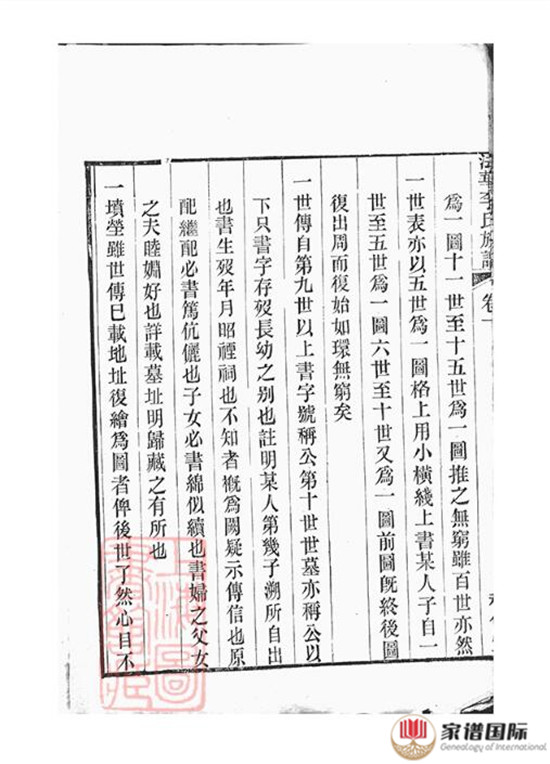 法華李氏族譜 卷一
爲一圖十一世至十五世爲一圖推之無窮雖百世亦然
一世表亦以五世爲一圖格上用小橫綫上書某人子自一
世至五世爲一圖六世至十世又爲一圖前圖旣終後圖
復出周而復始如環無窮矣
一世傳自第九世以上書字號稱公第十世世墓亦稱公以
下只書字存歿長幼之别也註明某人第幾子溯所自出
也書生歿年月昭禋祠也不知者槪爲闕疑示傳信也原
配繼配必書篤伉儷也子女必書綿似續也書婦之父女
之夫睦婣好也詳載墓址明歸藏之有所也
一墳塋雖世傳巳載地址復繪爲圖者俾後世了然心目不
家谱国际
Genealogy of International